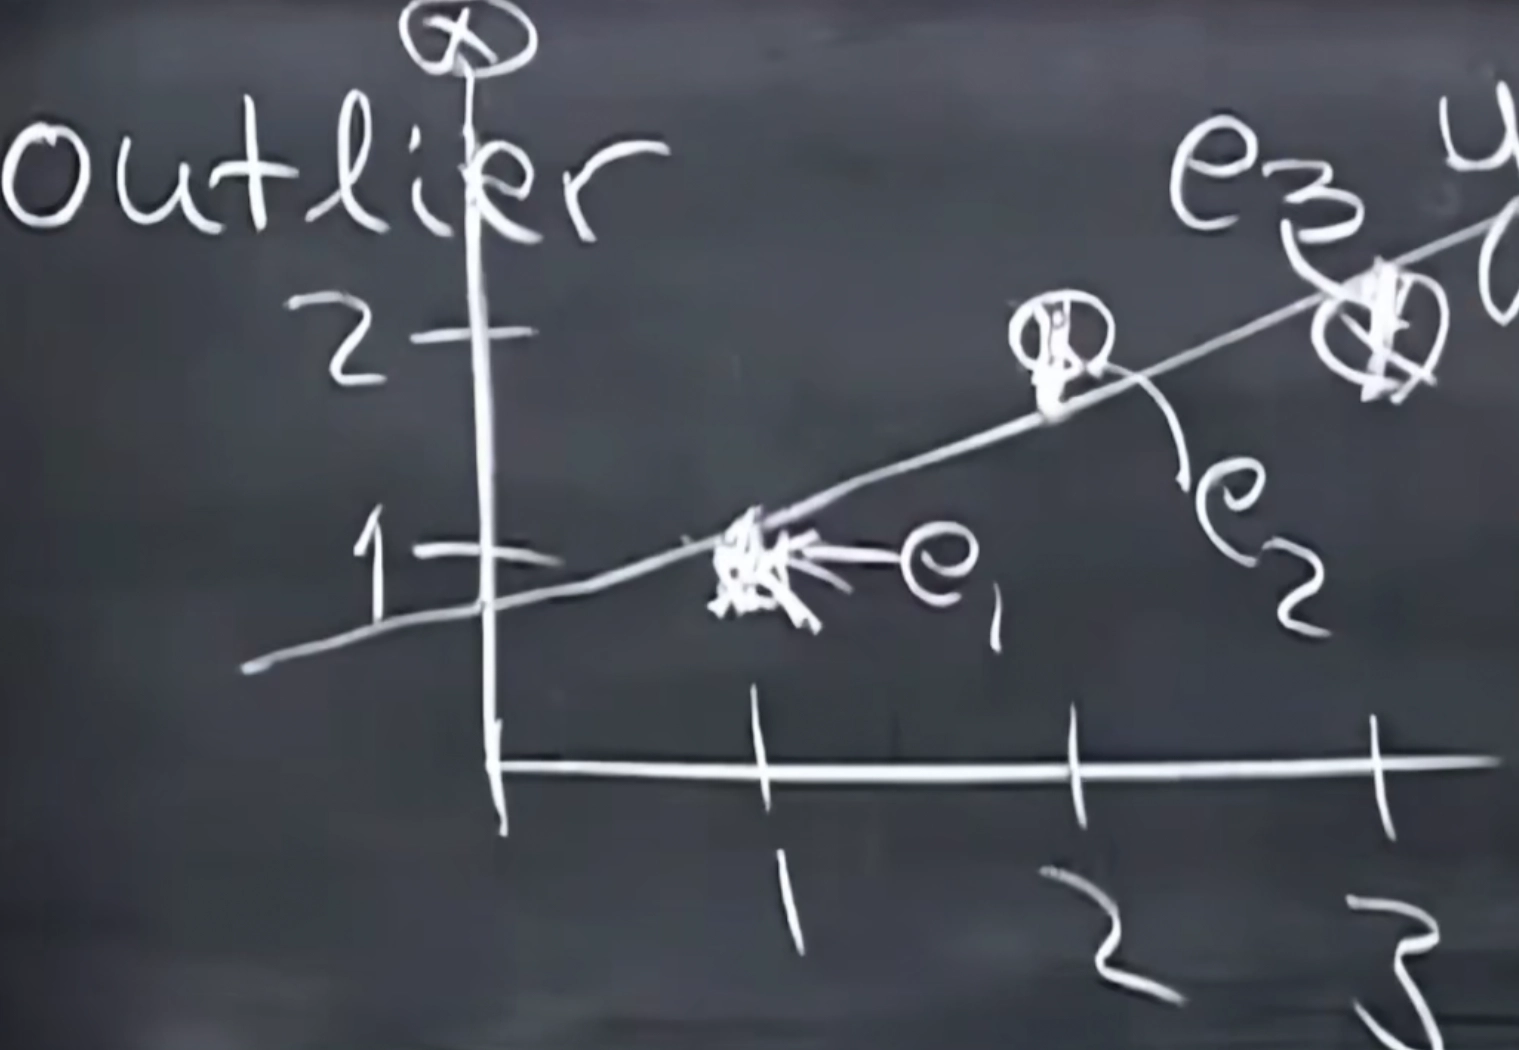 x
outlier
e3 y
2
1
e1
e2
1 2 3